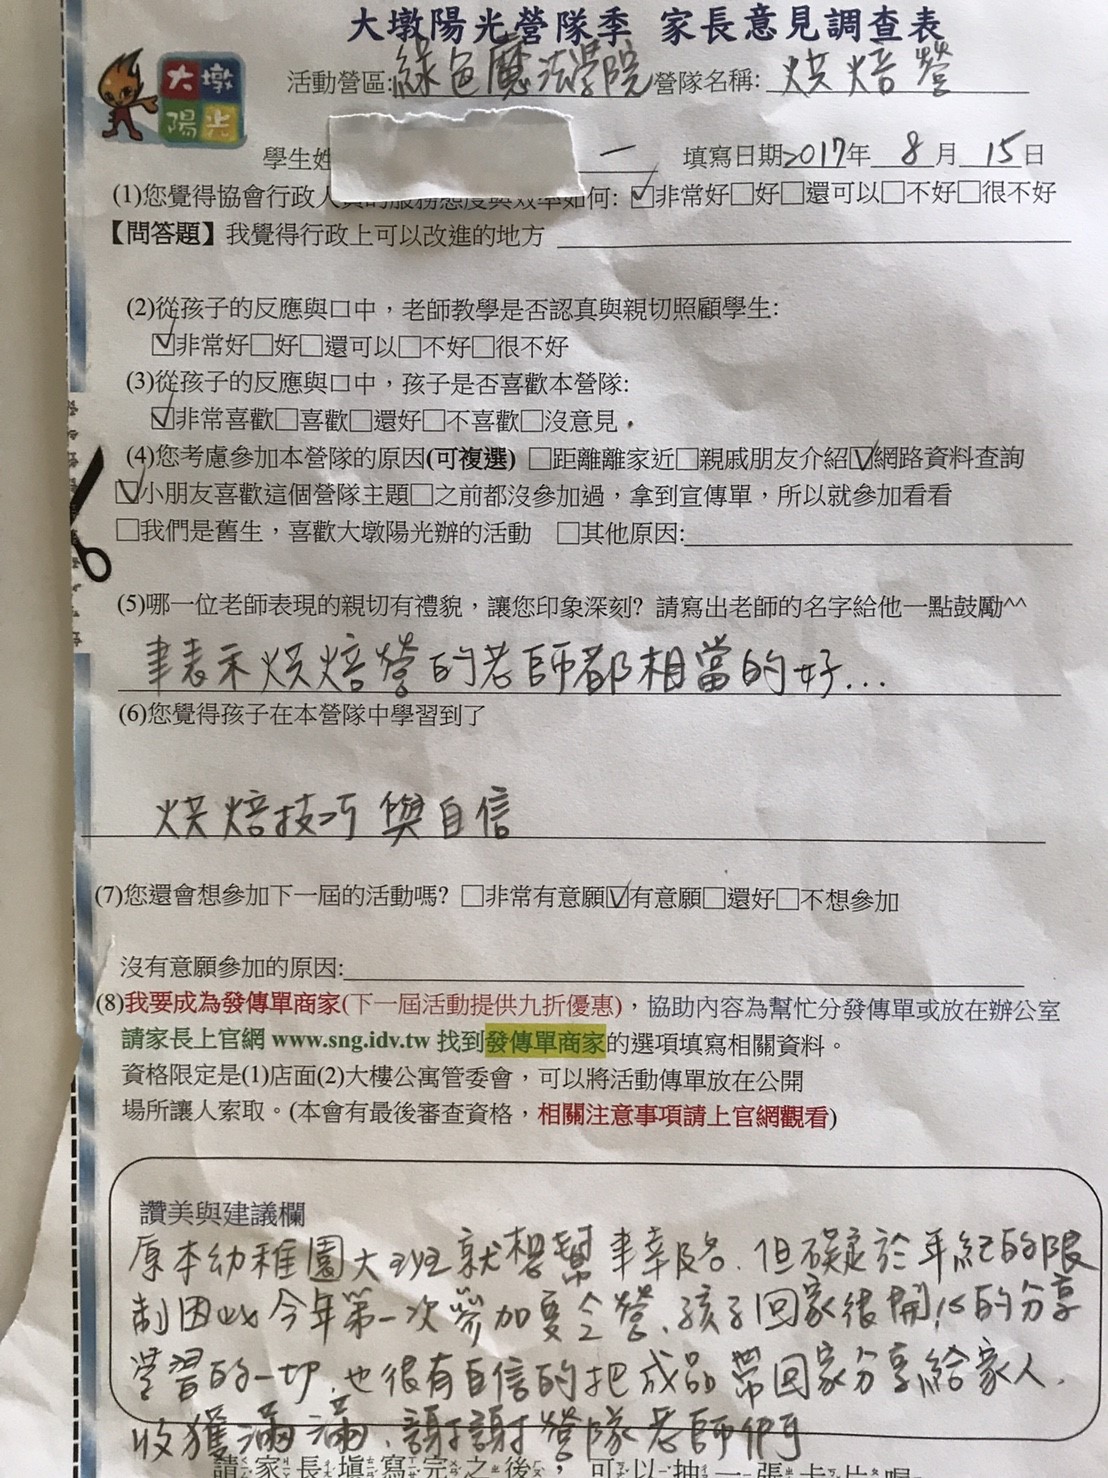 大墩陽光營隊季 家長意見調查表
大墩
陽光
活動營區:綠色魔法學院 營隊名稱: 烘焙營
學生姓 填寫日期2017年 8 月 15 日
(1)您覺得協會行政人員的服務態度與效率如何: ☑非常好□好□還可以□不好□很不好
【問答題】我覺得行政上可以改進的地方
(2)從孩子的反應與口中，老師教學是否認真與親切照顧學生:
☑非常好□好□還可以□不好□很不好
(3)從孩子的反應與口中，孩子是否喜歡本營隊:
☑非常喜歡□喜歡□還好□不喜歡□沒意見.
(4)您考慮參加本營隊的原因(可複選) □距離離家近□親戚朋友介紹☑網路資料查詢
☑小朋友喜歡這個營隊主題□之前都沒參加過，拿到宣傳單，所以就參加看看
□我們是舊生，喜歡大墩陽光辦的活動 □其他原因:
(5)哪一位老師表現的親切有禮貌，讓您印象深刻? 請寫出老師的名字給他一點鼓勵^^
表示烘焙營的老師都相當的好...
(6)您覺得孩子在本營隊中學習到了
烘焙技巧與自信
(7)您還會想參加下一屆的活動嗎? □非常有意願☑有意願□還好□不想參加
沒有意願參加的原因:
(8)我要成為發傳單商家(下一屆活動提供九折優惠)，協助內容為幫忙分發傳單或放在辦公室
請家長上官網 www.sng.idv.tw 找到發傳單商家的選項填寫相關資料。
資格限定是(1)店面(2)大樓公寓管委會，可以將活動傳單放在公開
場所讓人索取。(本會有最後審查資格，相關注意事項請上官網觀看)
讚美與建議欄
原本幼稚園大班就想幫 報名.但礙於年紀的限
制因此今年第一次參加夏令營、孩子回家很開心的分享
學習的一切,也很有自信的把成品帶回家分享給家人.
收獲滿滿、謝謝營隊老師們
請家長填寫完之後，可以抽一張卡片喔